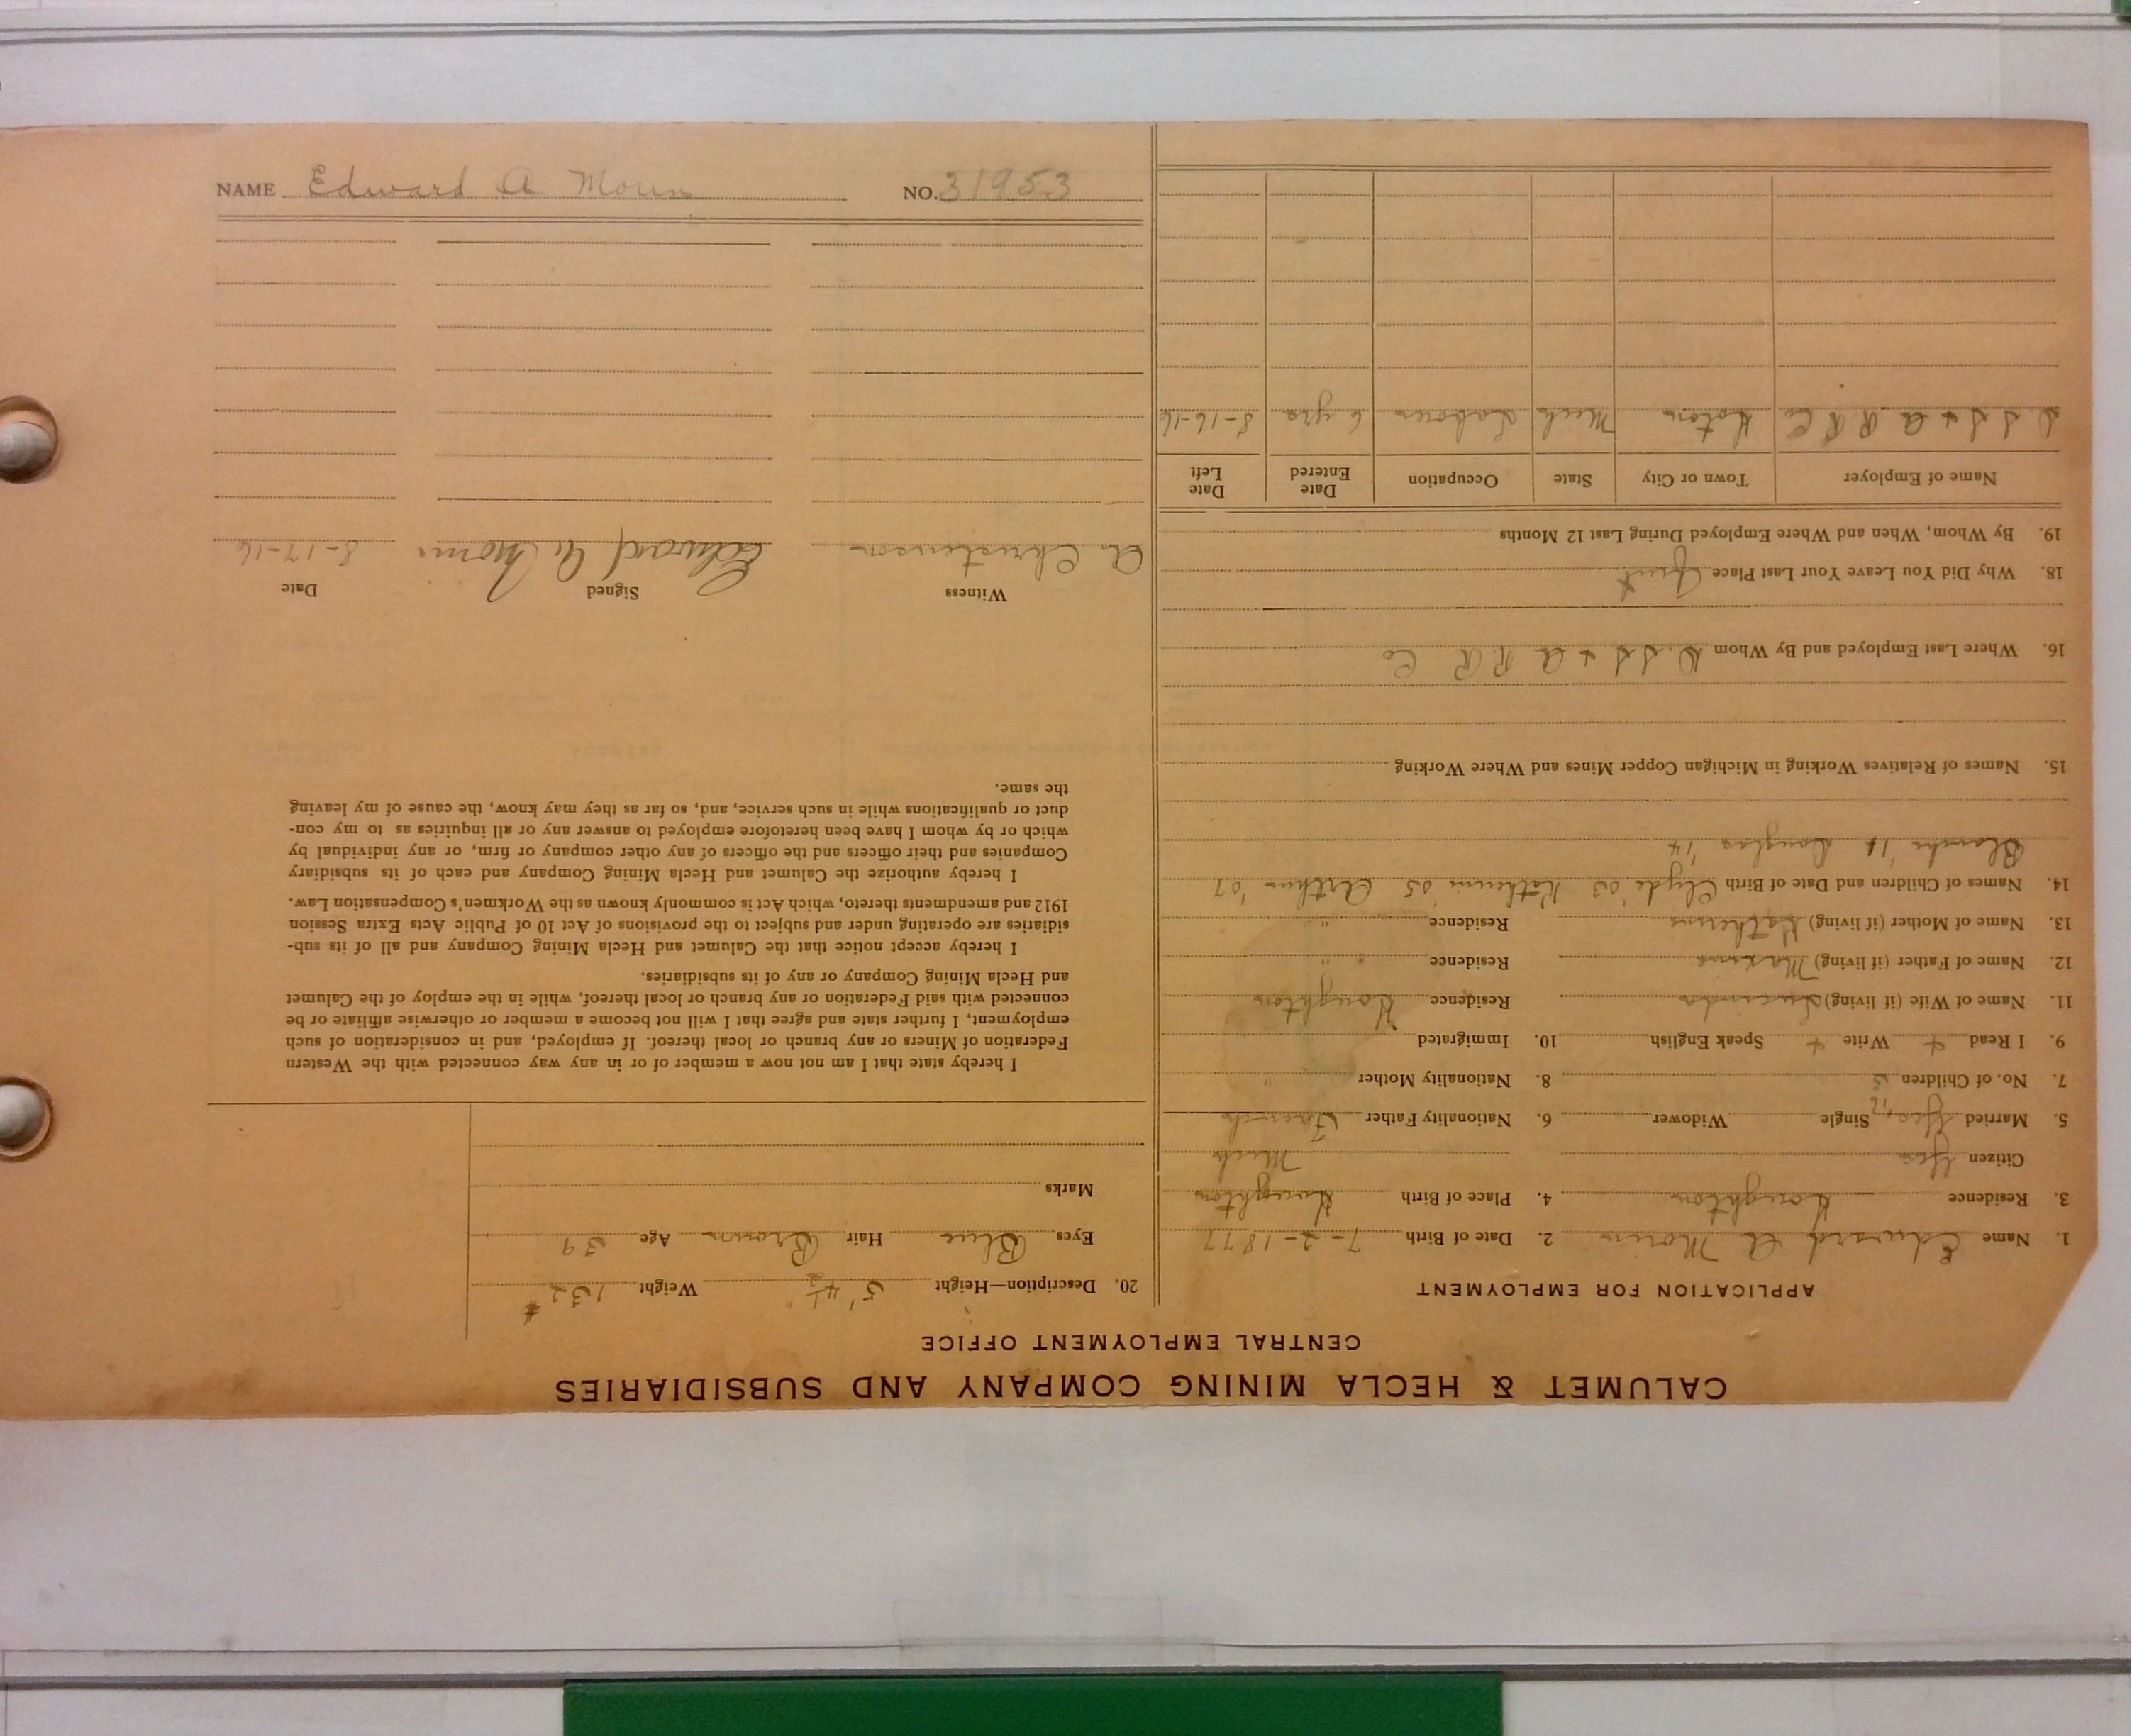 CALUMET & HECLA MINING COMPANY AND SUBSIDIARIES
CENTRAL EMPLOYMENT OFFICE
APPLICATION FOR EMPLOYMENT
1. Name Edward A Morin 2. Date of Birth 7-2-1877
3. Residence Houghton 4. Place of Birth Houghton
Citizen Yes Mich
5. Married Yes Single Widower 6. Nationality Father French
7. No. of Children 5 8. Nationality Mother "
9. I Read + Write + Speak English 10. Immigrated
11. Name of Wife (if living) Residence Houghton
12. Name of Father (if living) Residence "
13. Name of Mother (if living) Katherine Residence "
14. Names of Children and Date of Birth Clyde '03 '05 Arthur '07
Blanche Douglas '14
15. Names of Relatives Working in Michigan Copper Mines and Where Working
16. Where Last Employed and By Whom D. S S + A R R Co
18. Why Did You Leave Your Last Place Quit
19. By Whom, When and Where Employed During Last 12 Months
Name of Employer Town or City State Occupation Date Entered Date Left
D S S + A R R Co Hoton Mich Laborer 6 yrs 8-16-16
20. Description—Height 5' 4½" Weight 132 #
Eyes Blue Hair Brown Age 39
Marks
I hereby state that I am not now a member of or in any way connected with the Western
Federation of Miners or any branch or local thereof. If employed, and in consideration of such
employment, I further state and agree that I will not become a member or otherwise affiliate or be
connected with said Federation or any branch or local thereof, while in the employ of the Calumet
and Hecla Mining Company or any of its subsidiaries.
I hereby accept notice that the Calumet and Hecla Mining Company and all of its sub-
sidiaries are operating under and subject to the provisions of Act 10 of Public Acts Extra Session
1912 and amendments thereto, which Act is commonly known as the Workmen's Compensation Law.
I hereby authorize the Calumet and Hecla Mining Company and each of its subsidiary
Companies and their officers and the officers of any other company or firm, or any individual by
which or by whom I have been heretofore employed to answer any or all inquiries as to my con-
duct or qualifications while in such service, and, so far as they may know, the cause of my leaving
the same.
Witness Signed Date
A. Christenson Edward A. Morin 8-17-16
NAME Edward A Morin NO. 31953